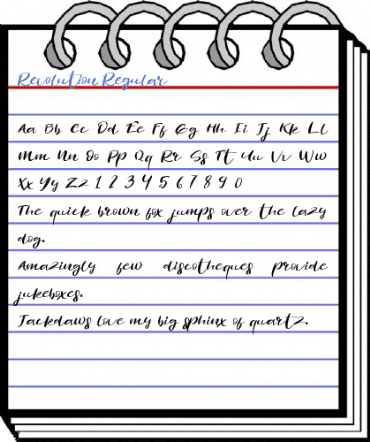 Revolution Regular
Aa Bb Cc Dd Ee Ff Gg Hh Ii Jj Kk Ll
Mm Nn Oo Pp Qq Rr Ss Tt Uu Vv Ww
Xx Yy Zz 1 2 3 4 5 6 7 8 9 0
The quick brown fox jumps over the lazy
dog.
Amazingly few discotheques provide
jukeboxes.
Jackdaws love my big sphinx of quartz.